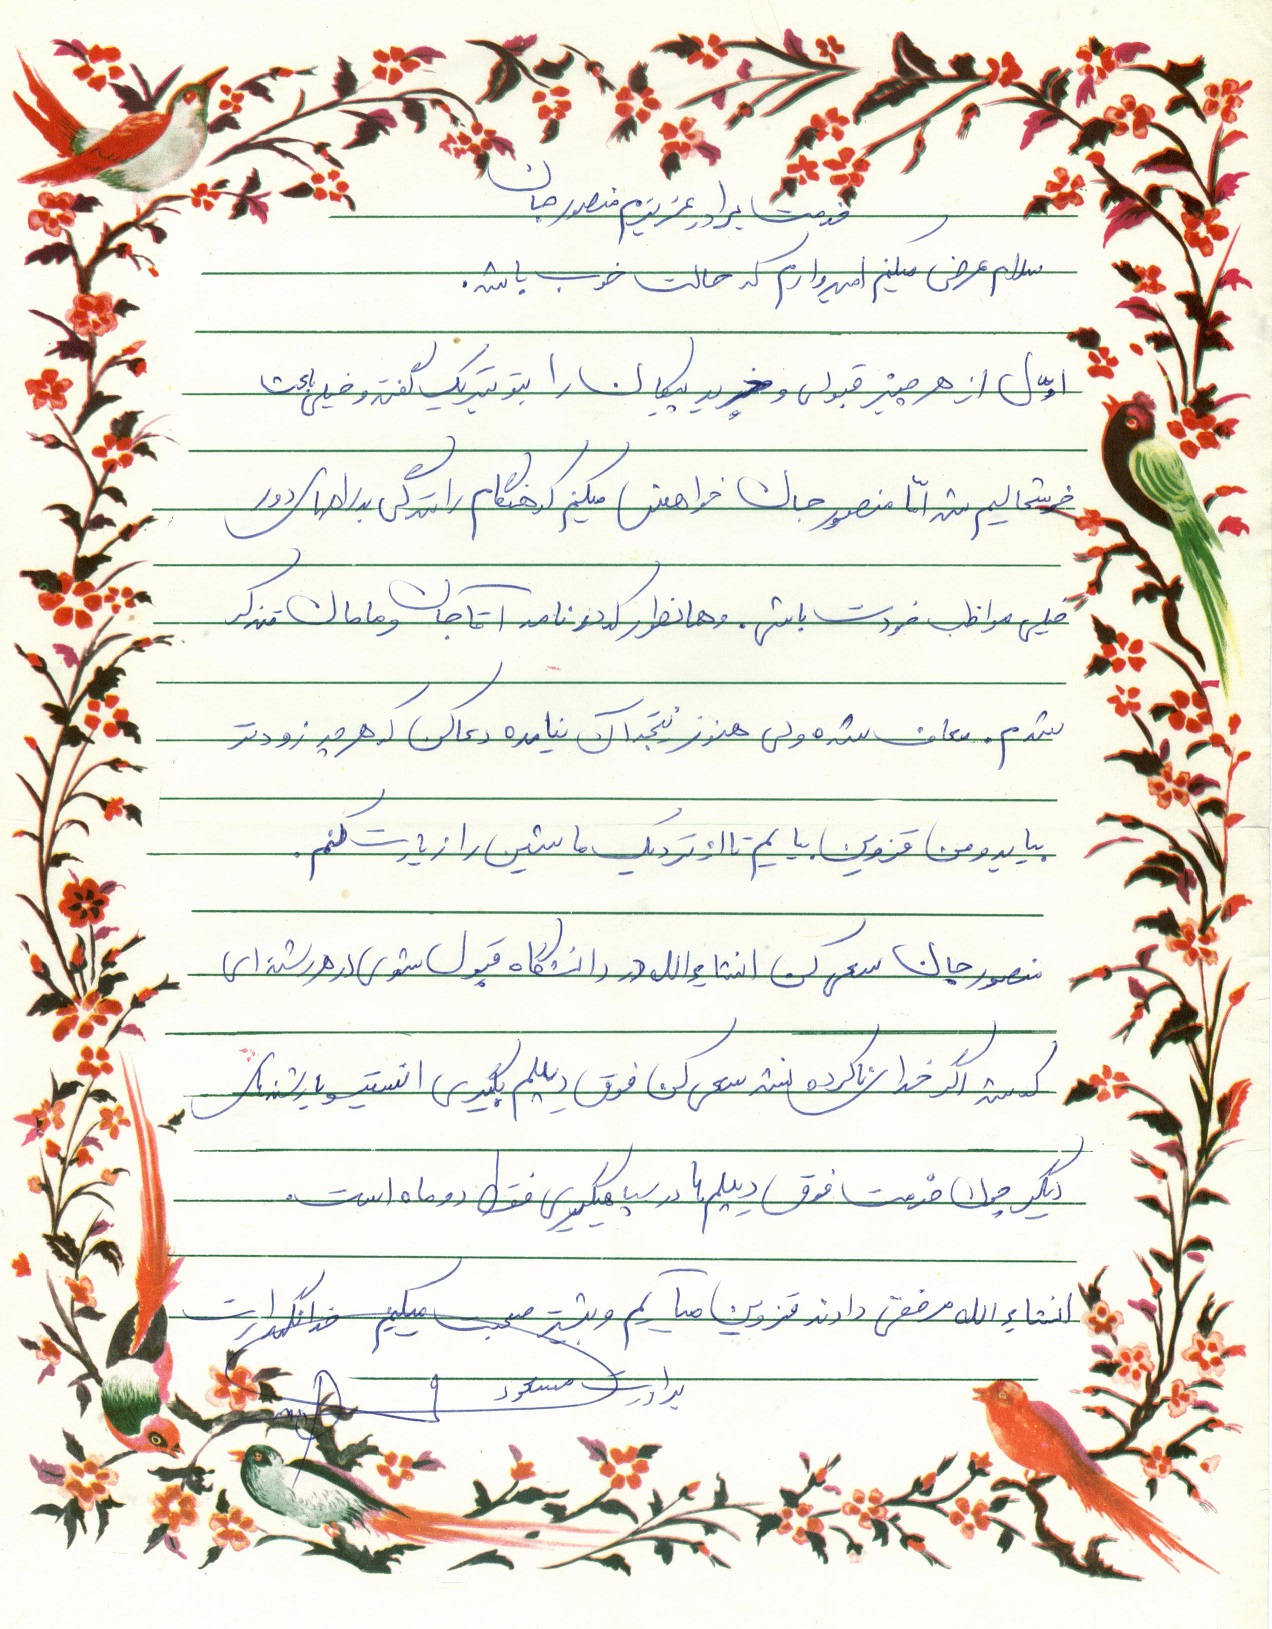 خدمت برادر عزیزم منصور جان
سلام عرض میکنم امیدوارم که حالت خوب باشد.
اوّل از هر چیز قبولی و خرید پیکان را بتو تبریک گفته و خیلی باعث
خوشحالیم شد امّا منصور جان خواهش میکنم که هنگام رانندگی به راههای دور
خیلی مواظب خودت باشی. و همانطور که در نامه آقاجان و مامان متذکر
شدم. معاف شده ولی هنوز نتیجه‌اش نیامده دعا کن که هر چه زودتر
بیاید و من قزوین بیایم تا از نزدیک ماشین را زیارت کنم.
منصور جان سعی کن انشاءالله در دانشگاه قبول شوی در هر رشته‌ای
که شد اگر خدای ناکرده نشد سعی کن فوق دیپلم بگیری انستیتو یا رشته‌های
دیگر چون خدمت فوق دیپلم‌ها در سپاهیگیری فقط دو ماه است.
انشاءالله مرخصی دادند قزوین میآیم و بیشتر صحبت میکنیم خدانگهدارت
برادرت مسعود